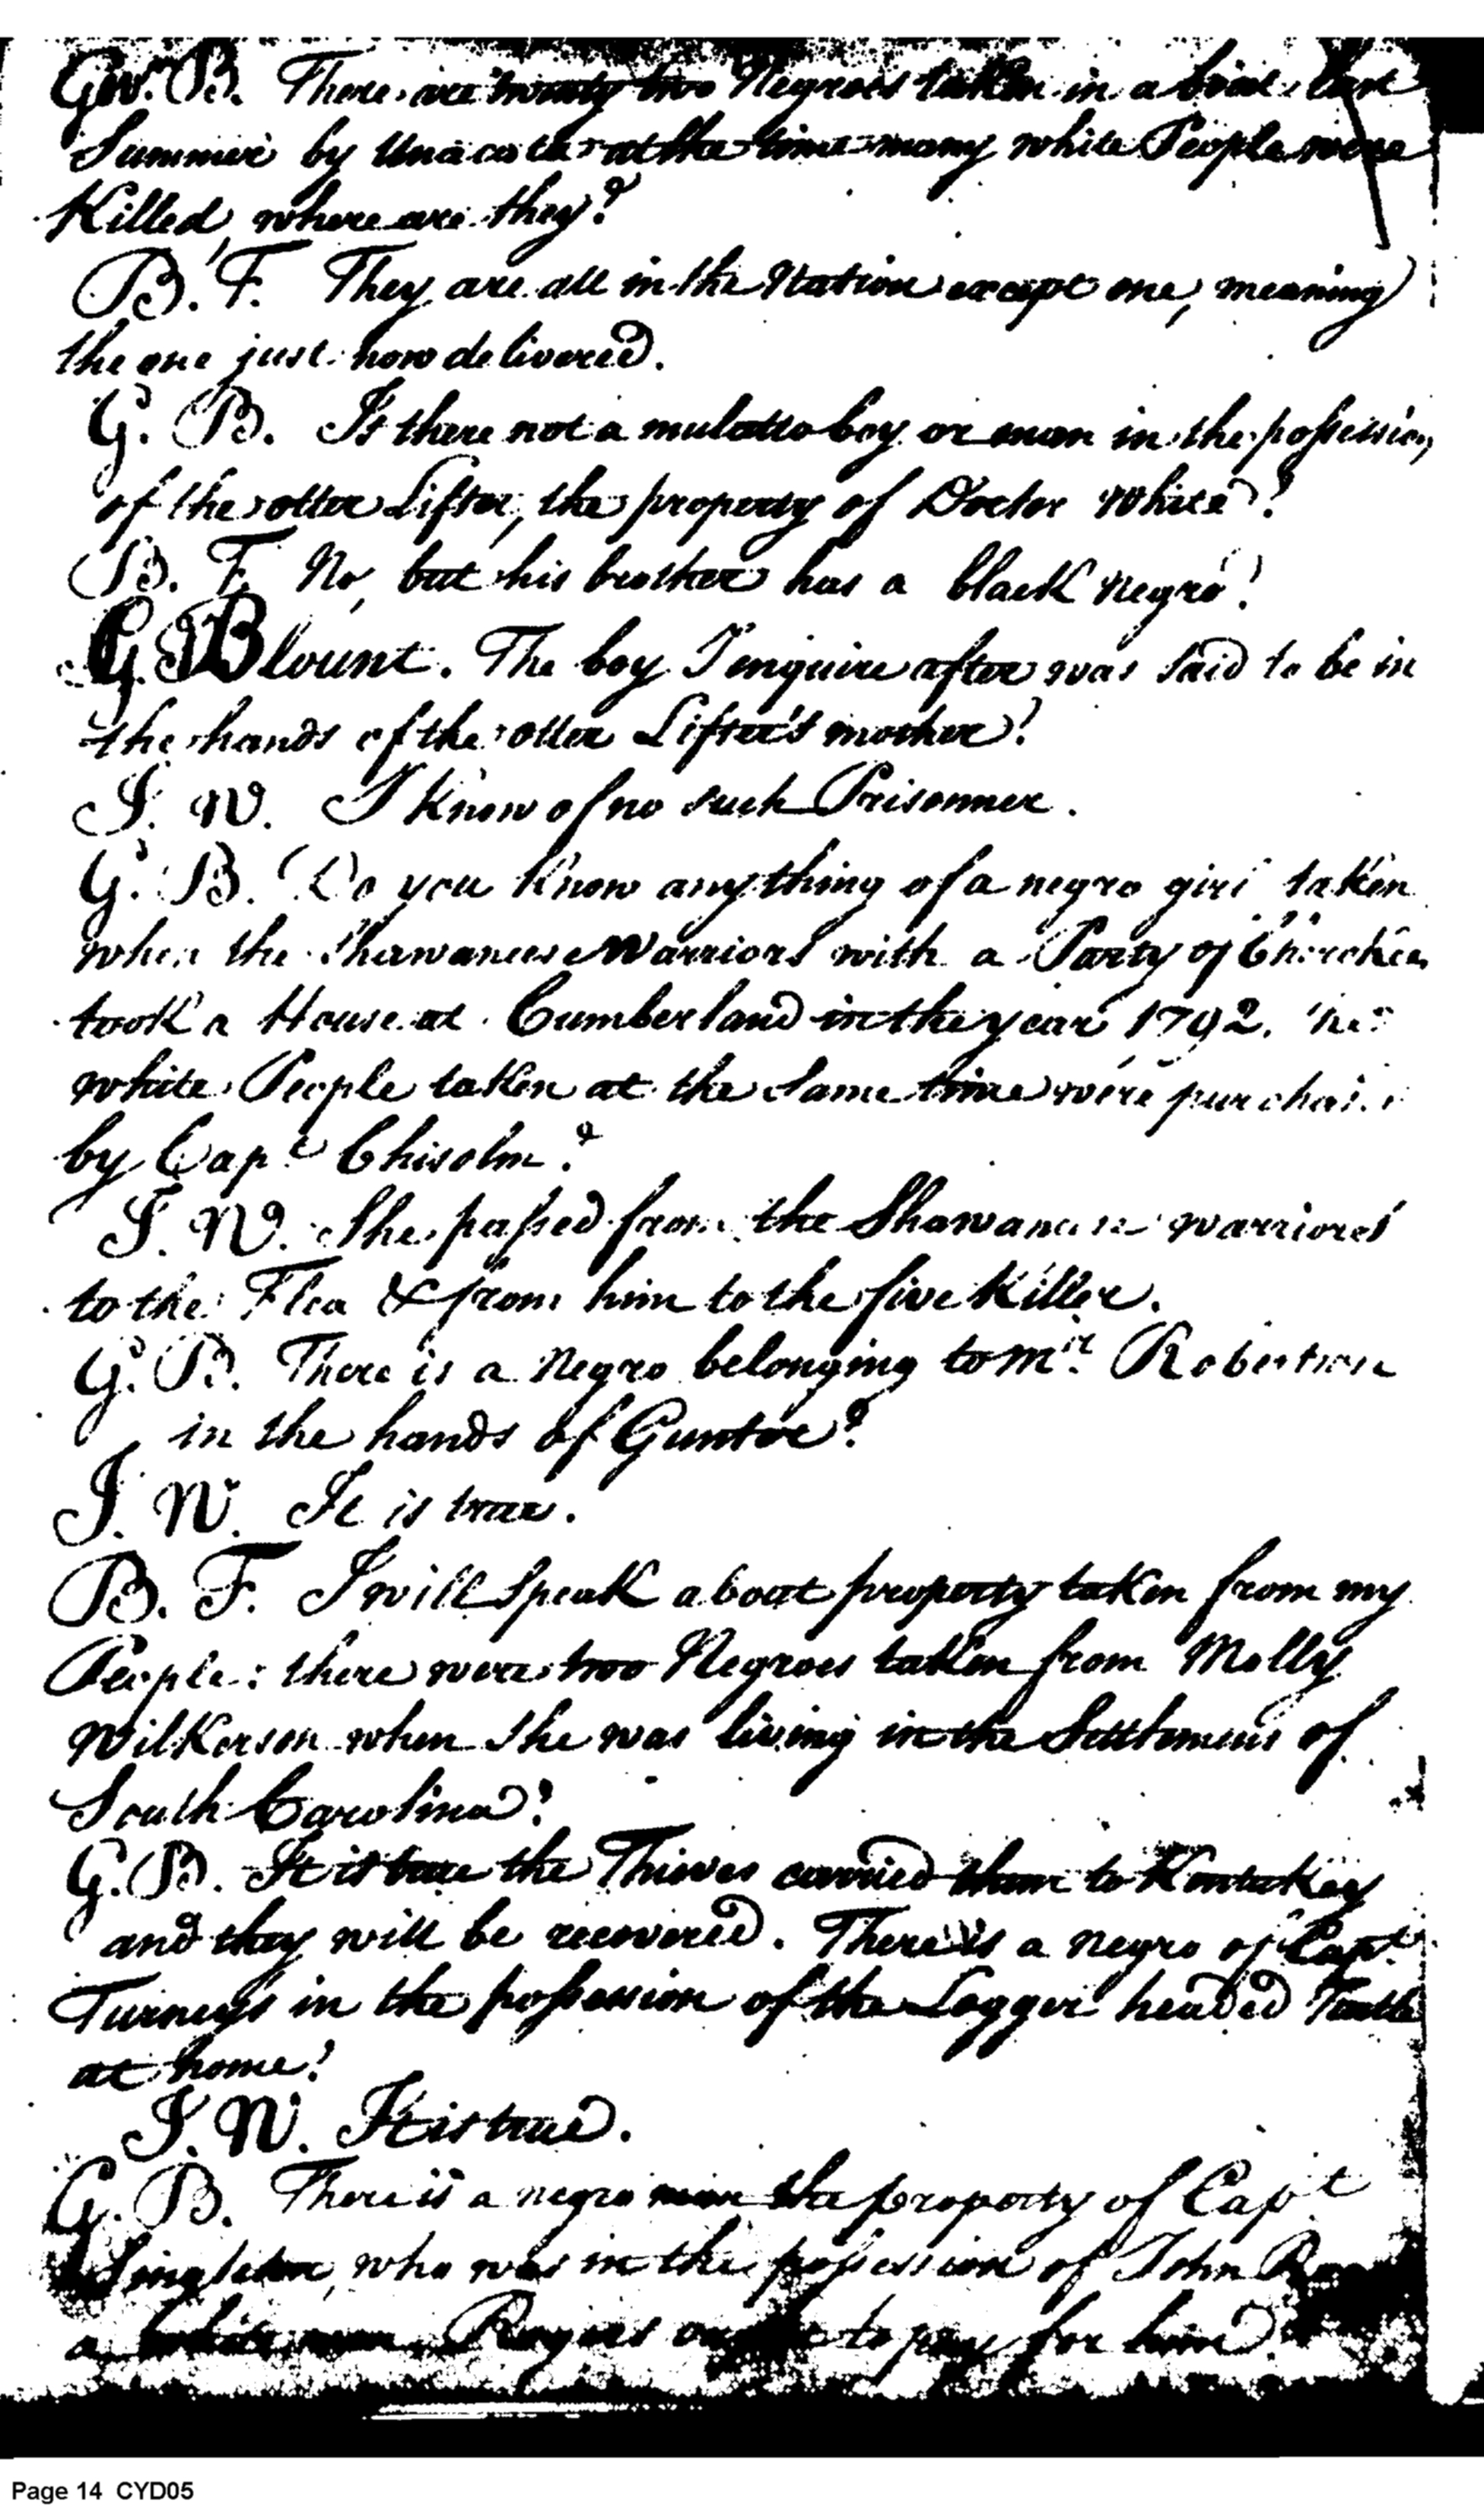 Govr. B. There are twenty two Negroes taken in a boat last
Summer by Unacata at the time many white People were
Killed, where are they?
B. F. They are all in the Nation except one, meaning
the one just now delivered.
G. B. Is there not a mulatto boy or man in the possession
of the otter Lifter, the property of Doctor White?
B. F. No, but his brother has a black negro!
G. Blount. The boy I enquire after was said to be in
the hands of the otter Lifter's mother?
J. W. I know of no such Prisonner.
G. B. Do you know any thing of a negro girl taken
when the Shawanese Warriors with a Party of Cherokees
took a House at Cumberland in the year 1792. The
white People taken at the same time were purchased
by Capt Chisolm?
J. W. She passed from the Shawanese warriores
to the Flea & from him to the five Killer.
G. B. There is a Negro belonging to Mr. Robertson
in the hands of Gunter?
J. W. It is true.
B. F. I will speak about property taken from my
People: there were two Negroes taken from Molly
Wilkerson when she was living in the Settlements of
South Carolina!
G. B. It is true the Thieves carried them to Kentukey
and they will be recovered. There is a negro of Capt.
Turneys in the possession of the Logger headed Turtle
at home!
J. W. It is true.
G. B. There is a negro man the property of Capt.
Singleton, who was in the possession of John
a white man, Rogers ought to pay for him.